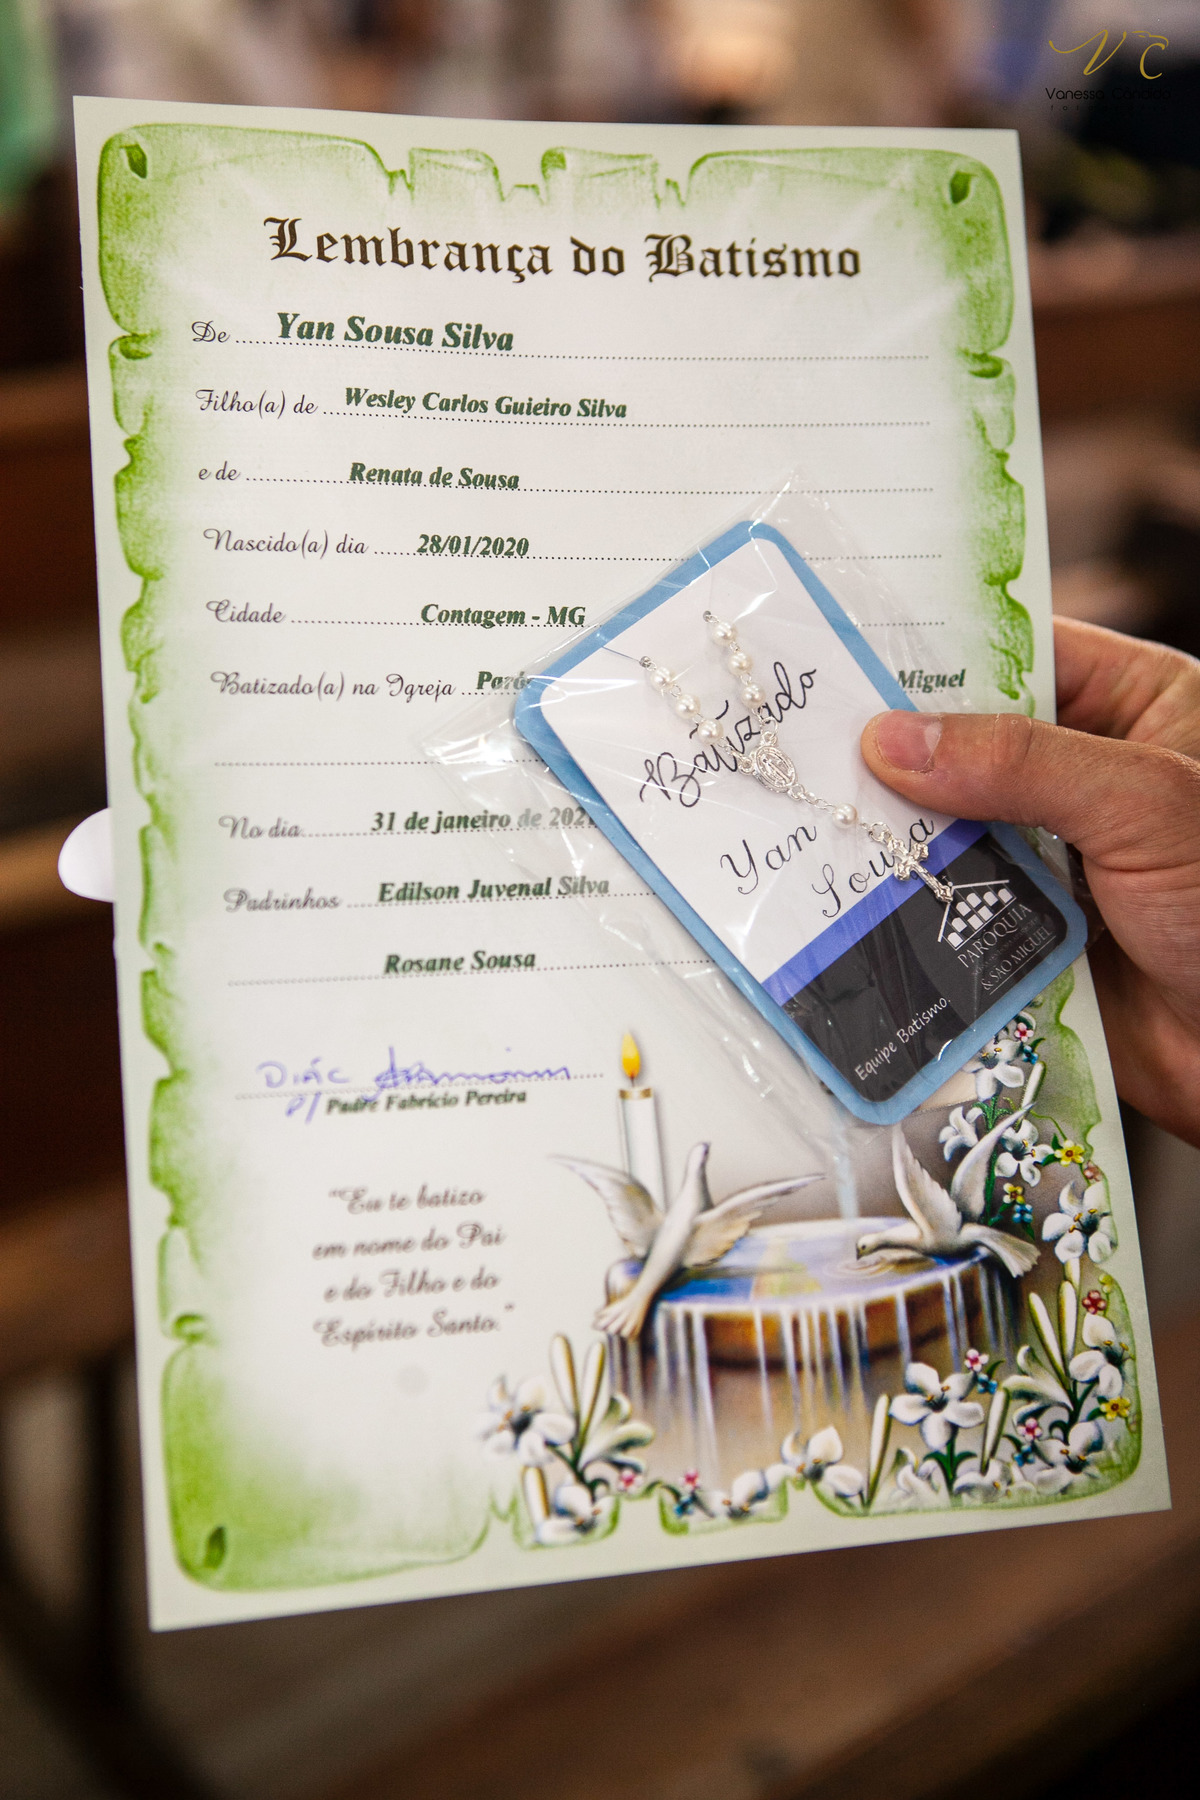 VC
Vanessa
Lembrança do Batismo
De Yan Sousa Silva
Filho(a) de Wesley Carlos Guieiro Silva
e de Renata de Sousa
Nascido(a) dia 28/01/2020
Cidade Contagem - MG
Batizado(a) na Igreja Paró Miguel
No dia 31 de janeiro de 2021
Padrinhos Edilson Juvenal Silva
Rosane Sousa
DIÁC
P/ Padre Fabrício Pereira
"Eu te batizo
em nome do Pai
e do Filho e do
Espírito Santo."
Batizado
Yan
Souza
PARÓQUIA
& SÃO MIGUEL
Equipe Batismo.